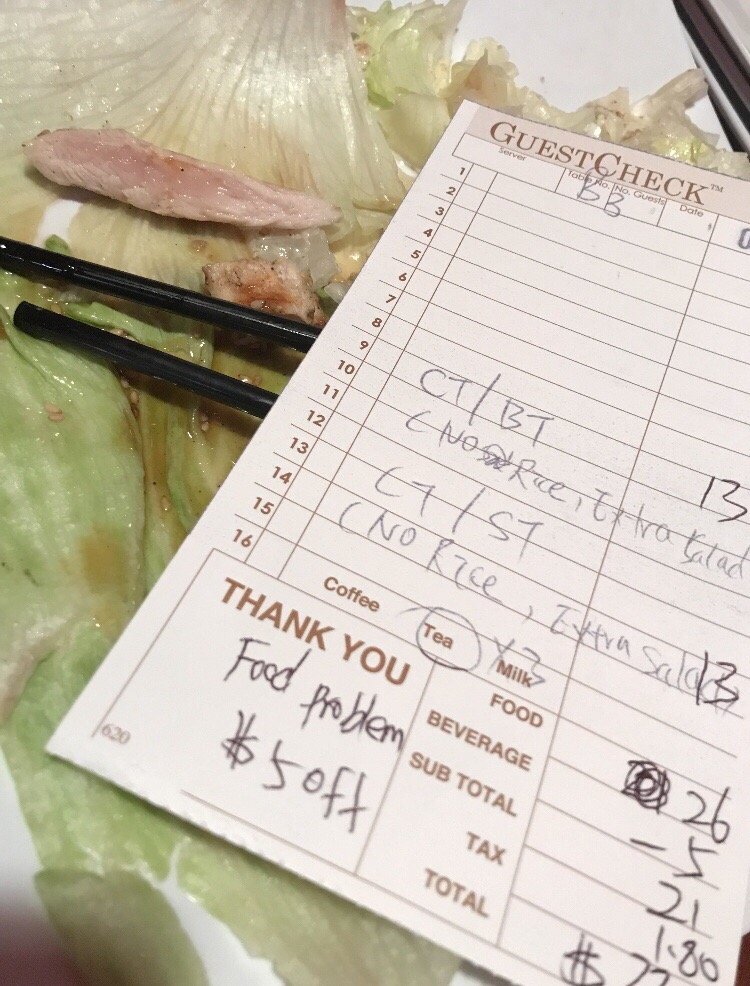 GUESTCHECK™
Server Table No. No. Guests Date
BB
1
2
3
4
5
6
7
8
9
10
11 CT/BT 13
12 (NO Rice, Extra Salad
13
14 CT/ST
15 (NO Rice, Extra Salad 13
16
Coffee Tea Milk
x3
THANK YOU
Food problem
$5 off
620
FOOD 26
BEVERAGE - 5
SUB TOTAL 21
TAX 1.80
TOTAL $